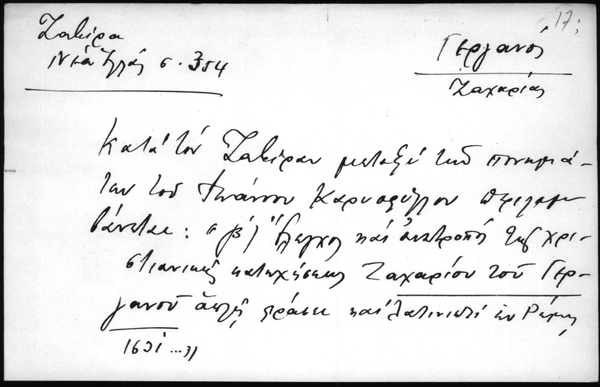 17;
Ζαβίρα
Νέα Ἑλλάς σ. 354
Γεργανός
Ζαχαρίας
Κατά τόν Ζαβίραν μεταξύ τῶν πονημά-
των τοῦ Ἰωάννου Καρυοφύλλου περιλαμ-
βάνεται: "β') Ἔλεγχος καί ἀνατροπή τῆς χρι-
στιανικῆς κατηχήσεως Ζαχαρίου τοῦ Γερ-
γανοῦ ἁπλῇ φράσει καί λατινιστί ἐν Ρώμῃ
1631 ... "